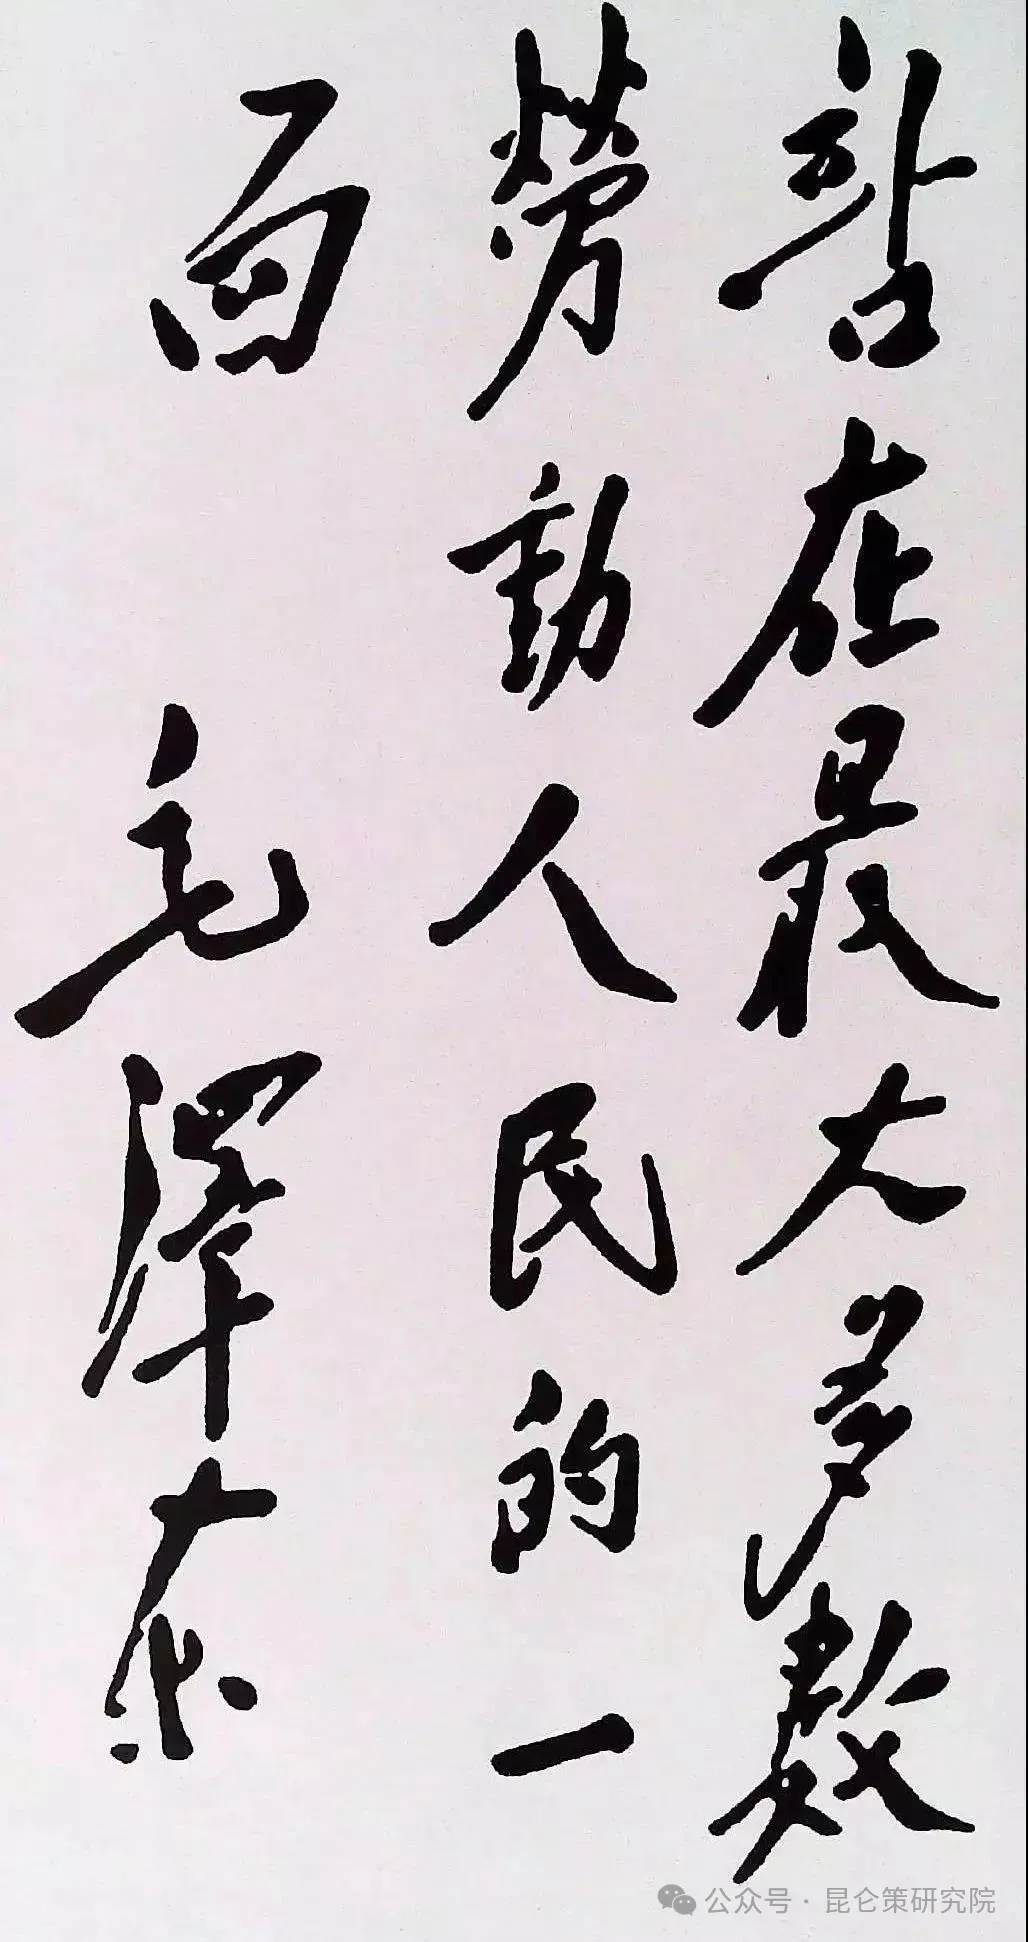 站在最大多数
劳动人民的一
面
毛泽东
公众号·昆仑策研究院